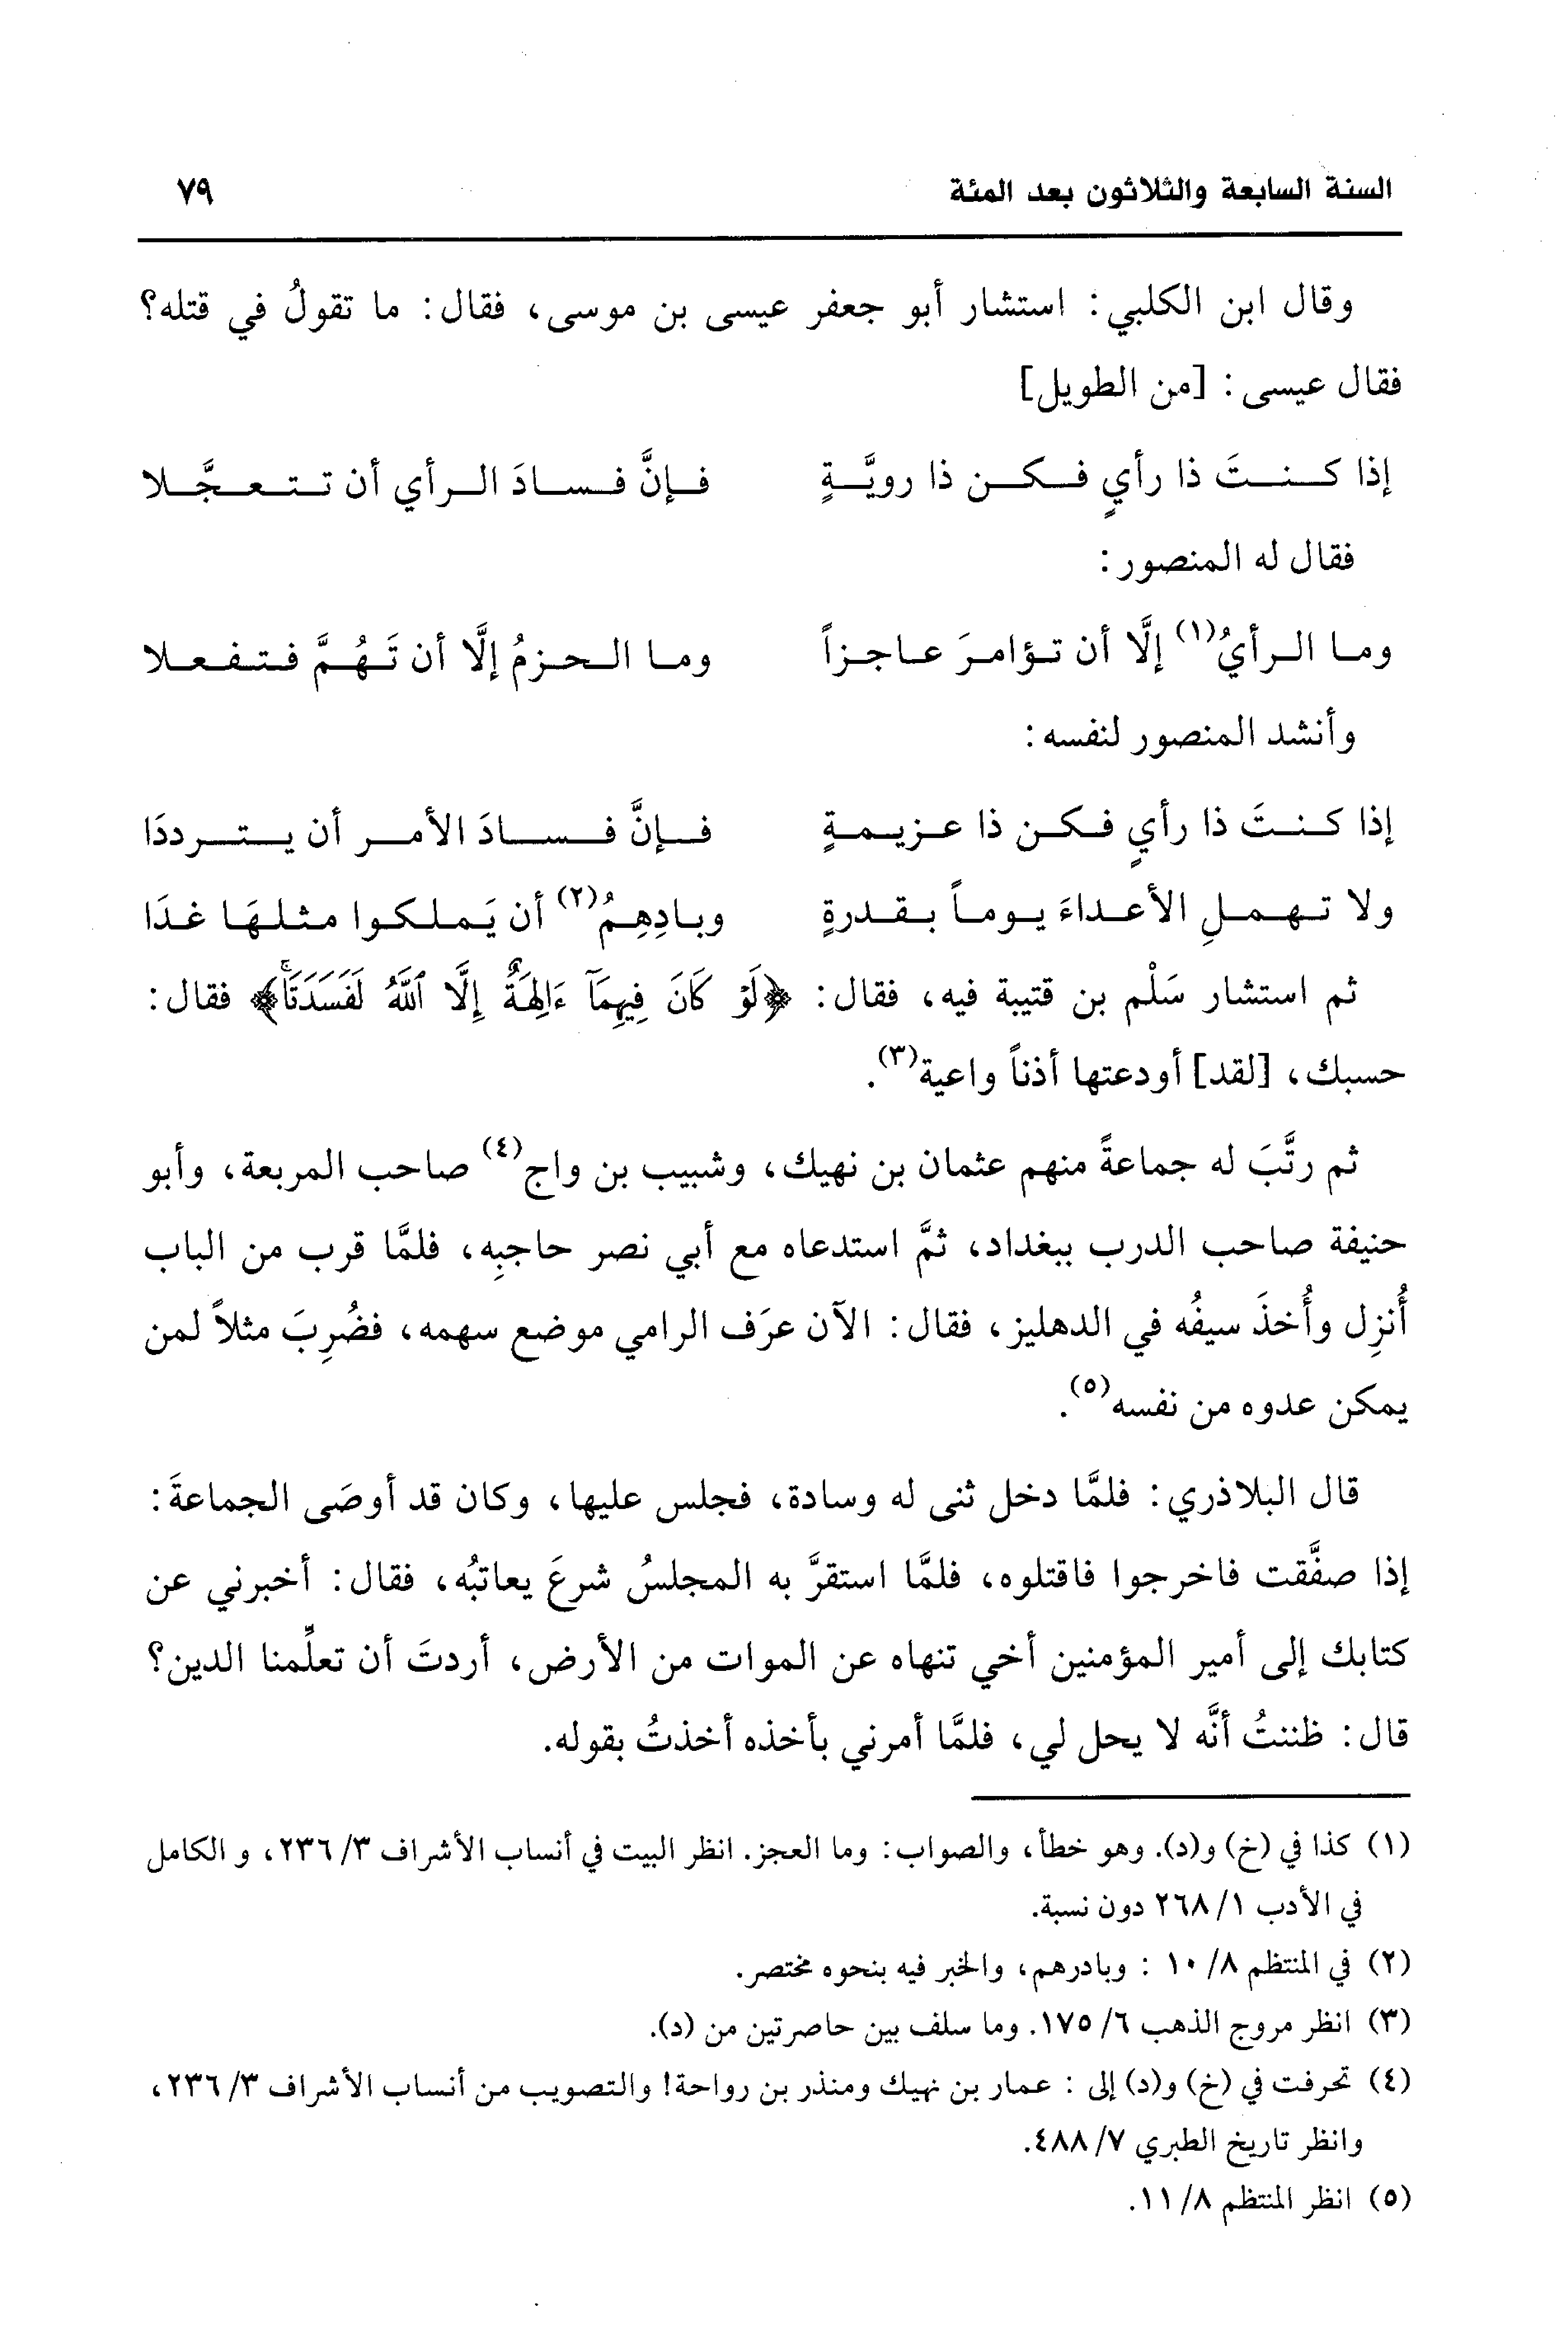 السنة السابعة والثلاثون بعد المئة ٧٩
وقال ابن الكلبي: استشار أبو جعفر عيسى بن موسى، فقال: ما تقولُ في قتله؟
فقال عيسى: [من الطويل]
إذا كنتَ ذا رأيٍ فكن ذا رويَّةٍ فإنَّ فسادَ الرأي أن تتعجَّلا
فقال له المنصور:
وما الرأيُ(١) إلَّا أن تؤامرَ عاجزاً وما الحزمُ إلَّا أن تَهُمَّ فتفعلا
وأنشد المنصور لنفسه:
إذا كنتَ ذا رأيٍ فكن ذا عزيمةٍ فإنَّ فسادَ الأمر أن يترددَا
ولا تهملِ الأعداءَ يوماً بقدرةٍ وبادِهِمُ(٢) أن يَملكوا مثلهَا غدَا
ثم استشار سَلْم بن قتيبة فيه، فقال: ﴿لَوْ كَانَ فِيهِمَآ ءَالِهَةٌ إِلَّا ٱللَّهُ لَفَسَدَتَاۚ﴾ فقال:
حسبك، [لقد] أودعتها أذناً واعية(٣).
ثم رتَّبَ له جماعةً منهم عثمان بن نهيك، وشبيب بن واج(٤) صاحب المربعة، وأبو
حنيفة صاحب الدرب ببغداد، ثمَّ استدعاه مع أبي نصر حاجبِه، فلمَّا قرب من الباب
أُنزِل وأُخذَ سيفُه في الدهليز، فقال: الآن عرَف الرامي موضع سهمه، فضُرِبَ مثلاً لمن
يمكن عدوه من نفسه(٥).
قال البلاذري: فلمَّا دخل ثنى له وسادة، فجلس عليها، وكان قد أوصَى الجماعةَ:
إذا صفَّقت فاخرجوا فاقتلوه، فلمَّا استقرَّ به المجلسُ شرعَ يعاتبُه، فقال: أخبرني عن
كتابك إلى أمير المؤمنين أخي تنهاه عن الموات من الأرض، أردتَ أن تعلِّمنا الدين؟
قال: ظننتُ أنَّه لا يحل لي، فلمَّا أمرني بأخذه أخذتُ بقوله.
(١) كذا في (خ) و(د). وهو خطأ، والصواب: وما العجز. انظر البيت في أنساب الأشراف ٣/ ٢٣٦، و الكامل
في الأدب ١/ ٢٦٨ دون نسبة.
(٢) في المنتظم ٨/ ١٠ : وبادرهم، والخبر فيه بنحوه مختصر.
(٣) انظر مروج الذهب ٦/ ١٧٥. وما سلف بين حاصرتين من (د).
(٤) تحرفت في (خ) و(د) إلى : عمار بن نهيك ومنذر بن رواحة! والتصويب من أنساب الأشراف ٣/ ٢٣٦،
وانظر تاريخ الطبري ٧/ ٤٨٨.
(٥) انظر المنتظم ٨/ ١١.